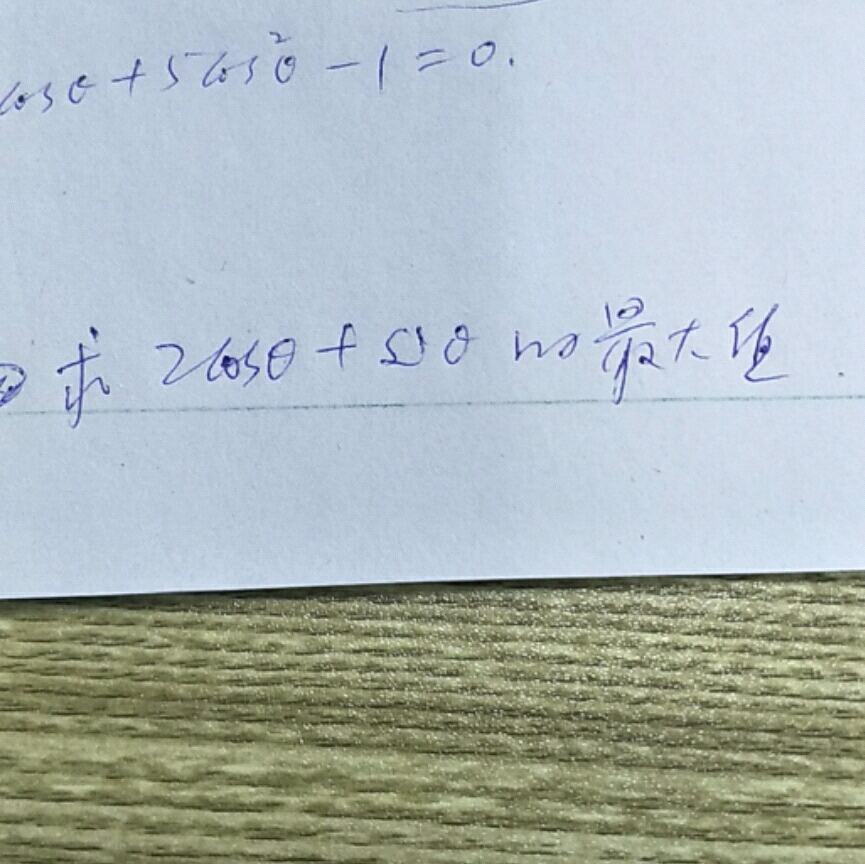 cosθ+5cos²θ-1=0.
求 2cosθ+sinθ 的最大值.